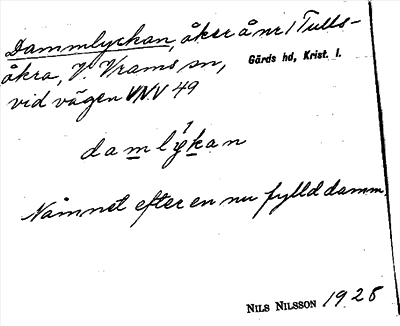 Dammlyckan, åker å nr 1 Tulls-
åkra, V. Vrams sn, Gärds hd, Krist. l.
vid vägen VNV 49
damlykan
Namnet efter en nu fylld damm.
NILS NILSSON 1928